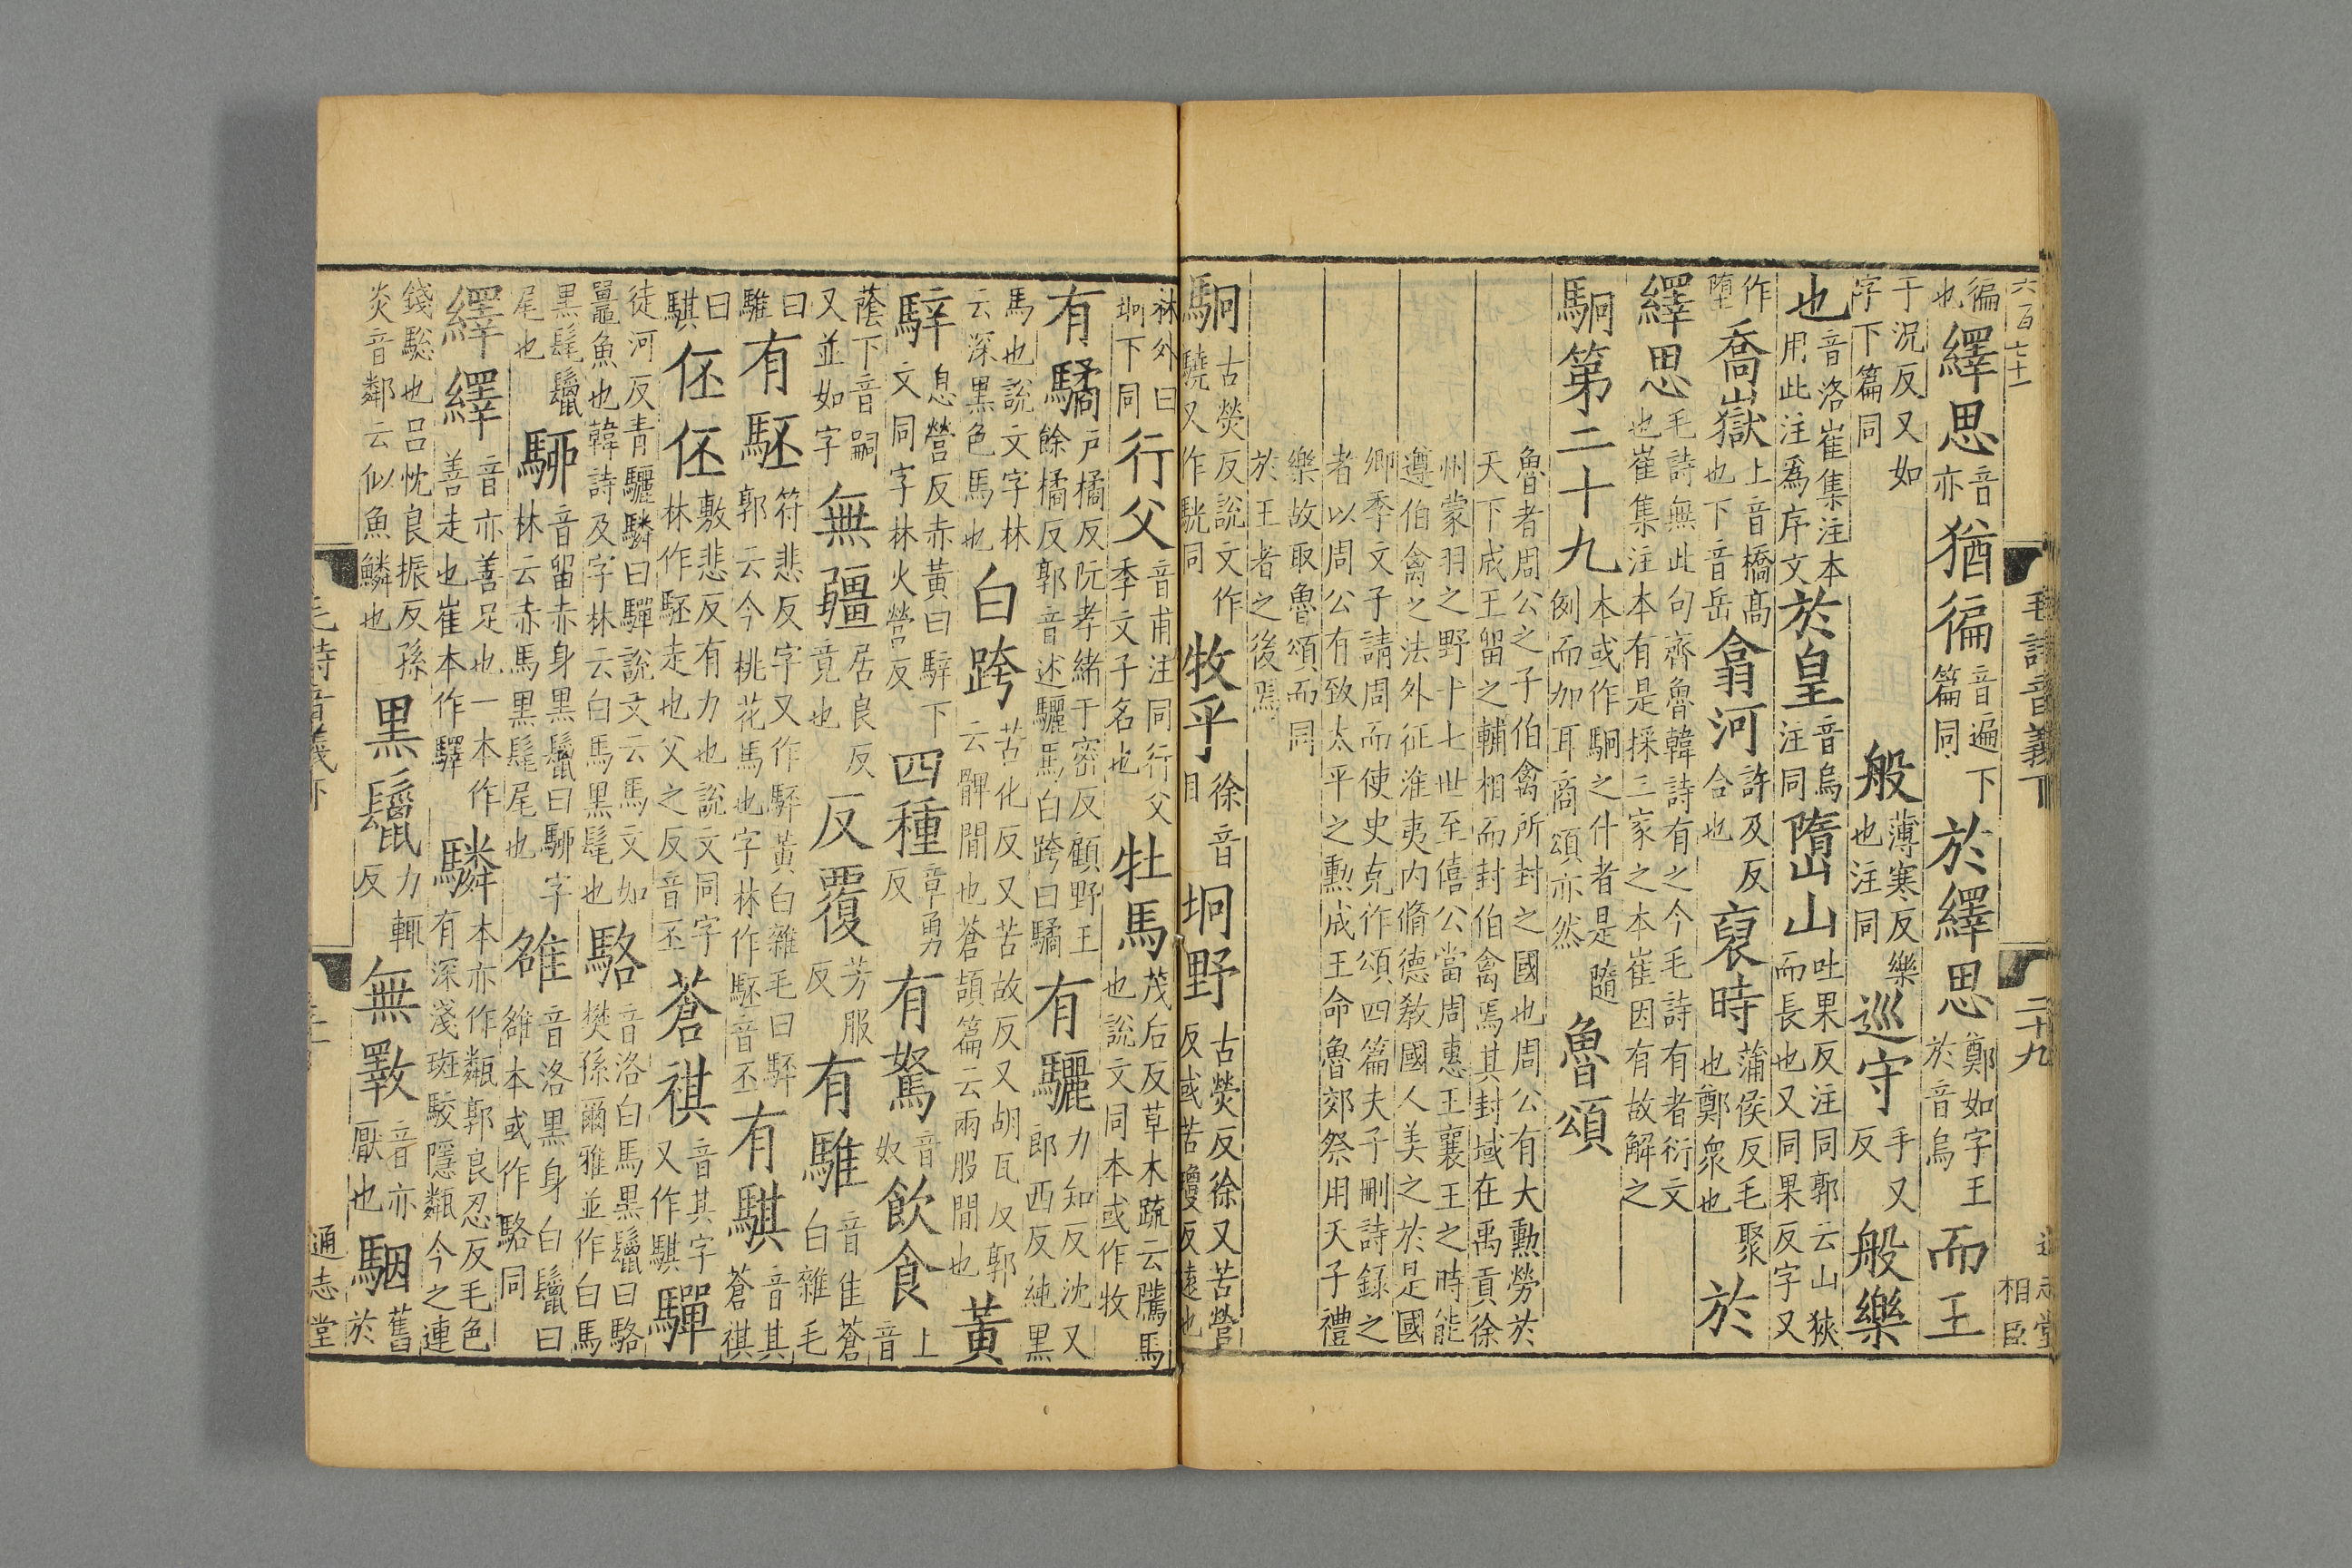 六百七十一 毛詩音義下 二十九 通志堂 相臣
徧也繹思音亦猶徧音遍下篇同於繹思鄭如字王於音烏而王
于況反又如字下篇同般薄寒反樂也注同巡守手又反般樂
也音洛崔集注本用此注爲序文於皇音烏注同隋山吐果反注同郭云山狹而長也又同果反字又
作墮喬嶽上音橋高也下音岳翕河許及反合也裒時蒲侯反毛聚也鄭衆也於
繹思毛詩無此句齊魯韓詩有之今毛詩有者衍文也崔集注本有是採三家之本崔因有故解之
駉第二十九本或作駉之什者是隨例而加耳商頌亦然魯頌
魯者周公之子伯禽所封之國也周公有大勳勞於天下成王留之輔相而封伯禽焉其封域在禹貢徐
州蒙羽之野十七世至僖公當周惠王襄王之時能遵伯禽之法外征淮夷内脩德敎國人美之於是國
卿季文子請周而使史克作頌四篇夫子刪詩録之者以周公有致太平之勳成王命魯郊祭用天子禮
樂故取魯頌而同於王者之後焉
駉古熒反說文作驍又作駫同牧乎徐音目坰野古熒反徐又苦營反或苦瓊反遠也
林外曰坰下同行父音甫注同行父季文子名也牡馬茂后反草木疏云騭馬也說文同本或作牧
有驈戶橘反阮孝緒于密反顧野王餘橘反郭音述驪馬白跨曰驈有驪力知反沈又郎西反純黑
馬也說文字林云深黑色馬也白跨苦化反又苦故反又胡瓦反郭云髀閒也蒼頡篇云兩股閒也黃
騂息營反赤黃曰騂下文同字林火營反四種章勇反有駑音奴飲食上音
蔭下音嗣又並如字無疆居良反竟也反覆芳服反有騅音隹蒼白雜毛
曰騅有駓符悲反字又作駓黃白雜毛曰駓郭云今桃花馬也字林作駓音丕有騏音其蒼祺
曰騏伾伾敷悲反有力也說文同字林作駓走也父之反音丕蒼祺音其字又作騏驒
徒河反青驪驎曰驒說文云馬文如鼉魚也韓詩及字林云白馬黑髦也駱音洛白馬黑鬣曰駱樊孫爾雅並作白馬
黑髦鬣尾也駵音留赤身黑鬣曰駵字林云赤馬黑髦尾也雒音洛黑身白鬣曰雒本或作駱同
繹繹音亦善足也一本作善走也崔本作驛驎本亦作甐郭良忍反毛色有深淺斑駮隱甐今之連
錢驄也呂忱良振反孫炎音鄰云似魚鱗也黑鬣力輒反無斁音亦厭也駰舊於
毛詩音義下 通志堂